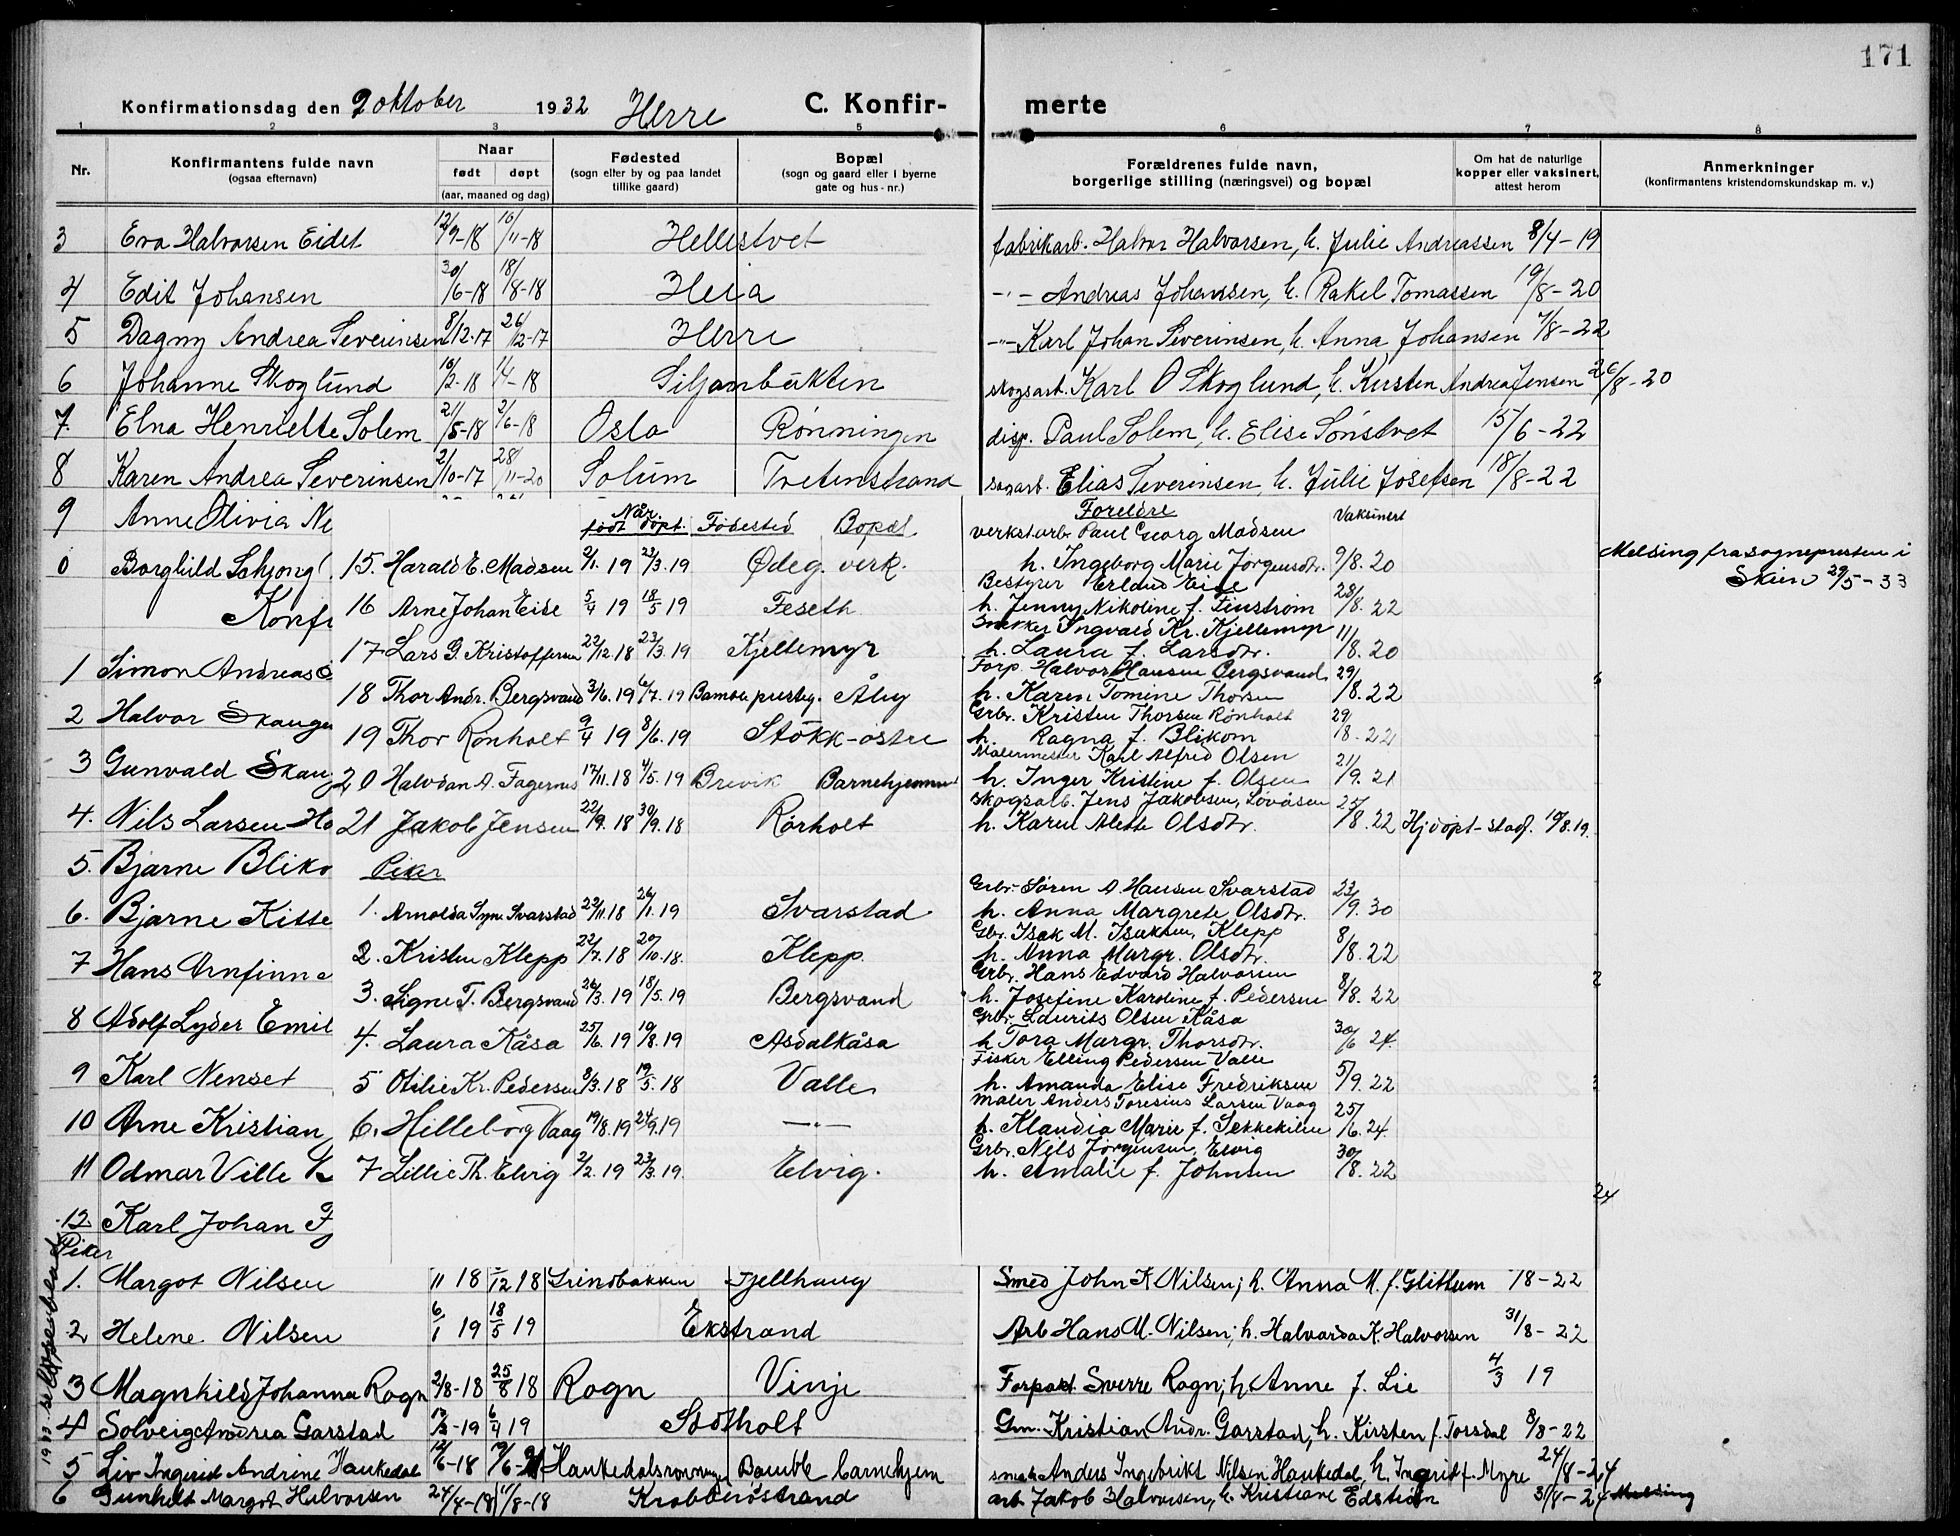 171
Konfirmationsdag den 2 oktober 1932 Herre C. Konfir- merte
1 2 3 5 6 7 8
Nr. Konfirmantens fulde navn (ogsaa efternavn) Naar født døpt (aar, maaned og dag) Fødested (sogn eller by og paa landet tillike gaard) Bopæl (sogn og gaard eller i byerne gate og hus-nr.) Forældrenes fulde navn, borgerlige stilling (næringsvei) og bopæl Om hat de naturlige kopper eller vaksinert, attest herom Anmerkninger (konfirmantens kristendomskundskap m. v.)
3 Eva Halvorsen Eidet 12/9-18 10/11-18 Hellestvet fabrikarb. Halvor Halvorsen, h. Julie Andreassen 8/4-19
4 Edit Johansen 30/6-18 18/8-18 Heia -"- Andreas Johansen, h. Rakel Tomassen 19/8-20
5 Dagny Andrea Severinsen 8/12-17 26/12-17 Herre -"- Karl Johan Severinsen, h. Anna Johansen 7/8-22
6 Johanne Skoglund 10/2-18 1/4-18 Siljanbukten skogsarb. Karl O Skoglund, h. Kirsten Andrea Jensen 26/8-20
7. Elna Henriette Solem 21/5-18 2/6-18 Oslo Rønningen disp. Paul Solem, h. Elise Sønstvet 15/6-22
8 Karen Andrea Severinsen 2/10-17 28/11-20 Solum Tretenstrand sagarb. Elias Severinsen, h. Julie Josefsen 18/8-22
9 Anne Olivia Ne
0 Borghild Schjong
Konfi
Når. født døpt. Fødested Bopæl Foreldre Vaksinert
15. Harald E. Madsen 2/1. 19 23/3. 19 Ødeg. verk. verkstarb. Paul Georg Madsen
h. Ingeborg Marie Jørgensdtr. 9/8. 20
Melding fra sognepresten i
Skien 29/5-33
16 Arne Johan Eide 5/4 19 18/5 19 Feseth Bestyrer Erland Eide
h. Jenny Nikoline f. Finstrøm 28/8. 22
17 Lars G. Kristoffersen 22/12. 18 23/3. 19 Kjellemyr Snekker Ingvald Kr. Kjellemyr
h. Laura f. Larsdtr. 11/8. 20
18 Thor Andr. Bergsvand 3/6. 19 6/7. 19 Bamble presteg. Åby Forp. Halvor Hansen Bergsvand
h. Karen Tomine Thorsen 29/8. 22
19 Thor Rønholt 9/4 19 8/6. 19 Stokk-østre Grbr. Kristen Thorsen Rønholt
h. Ragna f. Blikom 29/8. 22
20 Halvdan A. Fagernes 17/11. 18 4/5. 19 Brevik Barnehjemmet Malermester Karl Alfred Olsen
h. Inger Kristine f. Olsen 21/9. 21
21 Jakob Jensen 22/9. 18 30/9. 18 Rørholt Skogsarb. Jens Jakobsen, Lovåsen
h. Karen Alette Olsdtr. 25/8. 22 Hjdøpt-stadf. 10/8. 19.
Piker
1. Arnolda Syn. Svarstad 23/11. 18 26/1. 19 Svarstad Grbr. Søren A. Hansen Svarstad
h. Anna Margrete Olsdtr. 23/9. 30
2. Kristen Klepp 22/7. 18 20/10. 18. Klepp Gbr. Isak M. Isaksen, Klepp
h. Anna Margr. Olsdtr. 8/8. 22
3. Signe T. Bergsvand 26/3. 19 18/5. 19 Bergsvand Grbr. Hans Edvard Halvorsen
h. Josefine Karoline f. Pedersen 8/8. 22
4. Laura Kåsa 25/6. 19 10/8. 19 Asdalkåsa Grbr. Laurits Olsen Kåsa
h Tora Margr. Thorsdtr. 30/6 24.
5 Otilie Kr. Pedersen 8/3. 18 19/5. 18 Valle Fisker Elling Pedersen Valle
h. Amanda Elise Fredriksen 5/9. 22
6. Hilleborg Vaag 19/8. 19 24/9. 19 -"- Maler Anders Toresius Larsen Vaag
h. Klaudia Marie f. Sekkekilen 25/6. 24.
7 Lillie Th. Elvig 2/2. 19 23/3. 19. Elvig. Grbr. Nils Jørgensen, Elvig
h. Amalie f. Johnsen 30/8. 22
1 Simon Andreas
2 Halvor Skauge
3 Gunvald Skau
4. Nils Larsen Ho
5. Bjarne Bliko
6. Bjarne Kitte
7 Hans Arnfinn
8 Adolf Lyder Emil
9 Karl Nenset
10 Arne Kristian
11 Odmar Ville
12 Karl Johan F
Piker
1. Margot Nilsen 11 18 12 18 Grindbakken Fjellhaug Smed John K Nilsen; h. Anna M. f. Glittum /8-22
2 Helene Nilsen 6/1 19 18/5 19 Ekstrand Arb Hans M. Nilsen; h. Halvarda K. Halvorsen 31/8-22
3 Magnhild Johanna Rogn 2/8-18 25/8 18 Rogn Vinje Forpakt Sverre Rogn; h. Anne f. Lie 4/3 19
4 Solveig Andrea Garstad 13/3-19 6/4 19 Stotholt Gm. Kristian Andr. Garstad, h. Kirsten f. Torsdal 8/8-22
5 Liv Ingerid Andrine Haukedal 12/6-18 19/6-21 Haukedalsrønningen Bamble barnehjem smed Anders Ingebrikt Nilsen Haukedal, h. Ingrid f. Myre 24/8-24
6 Gunhild Margot Halvorsen 24/4-18 11/8-18 Krabberødstrand arb. Jakob Halvorsen, h. Kristiane Edstrøm 31/8-24 Melding